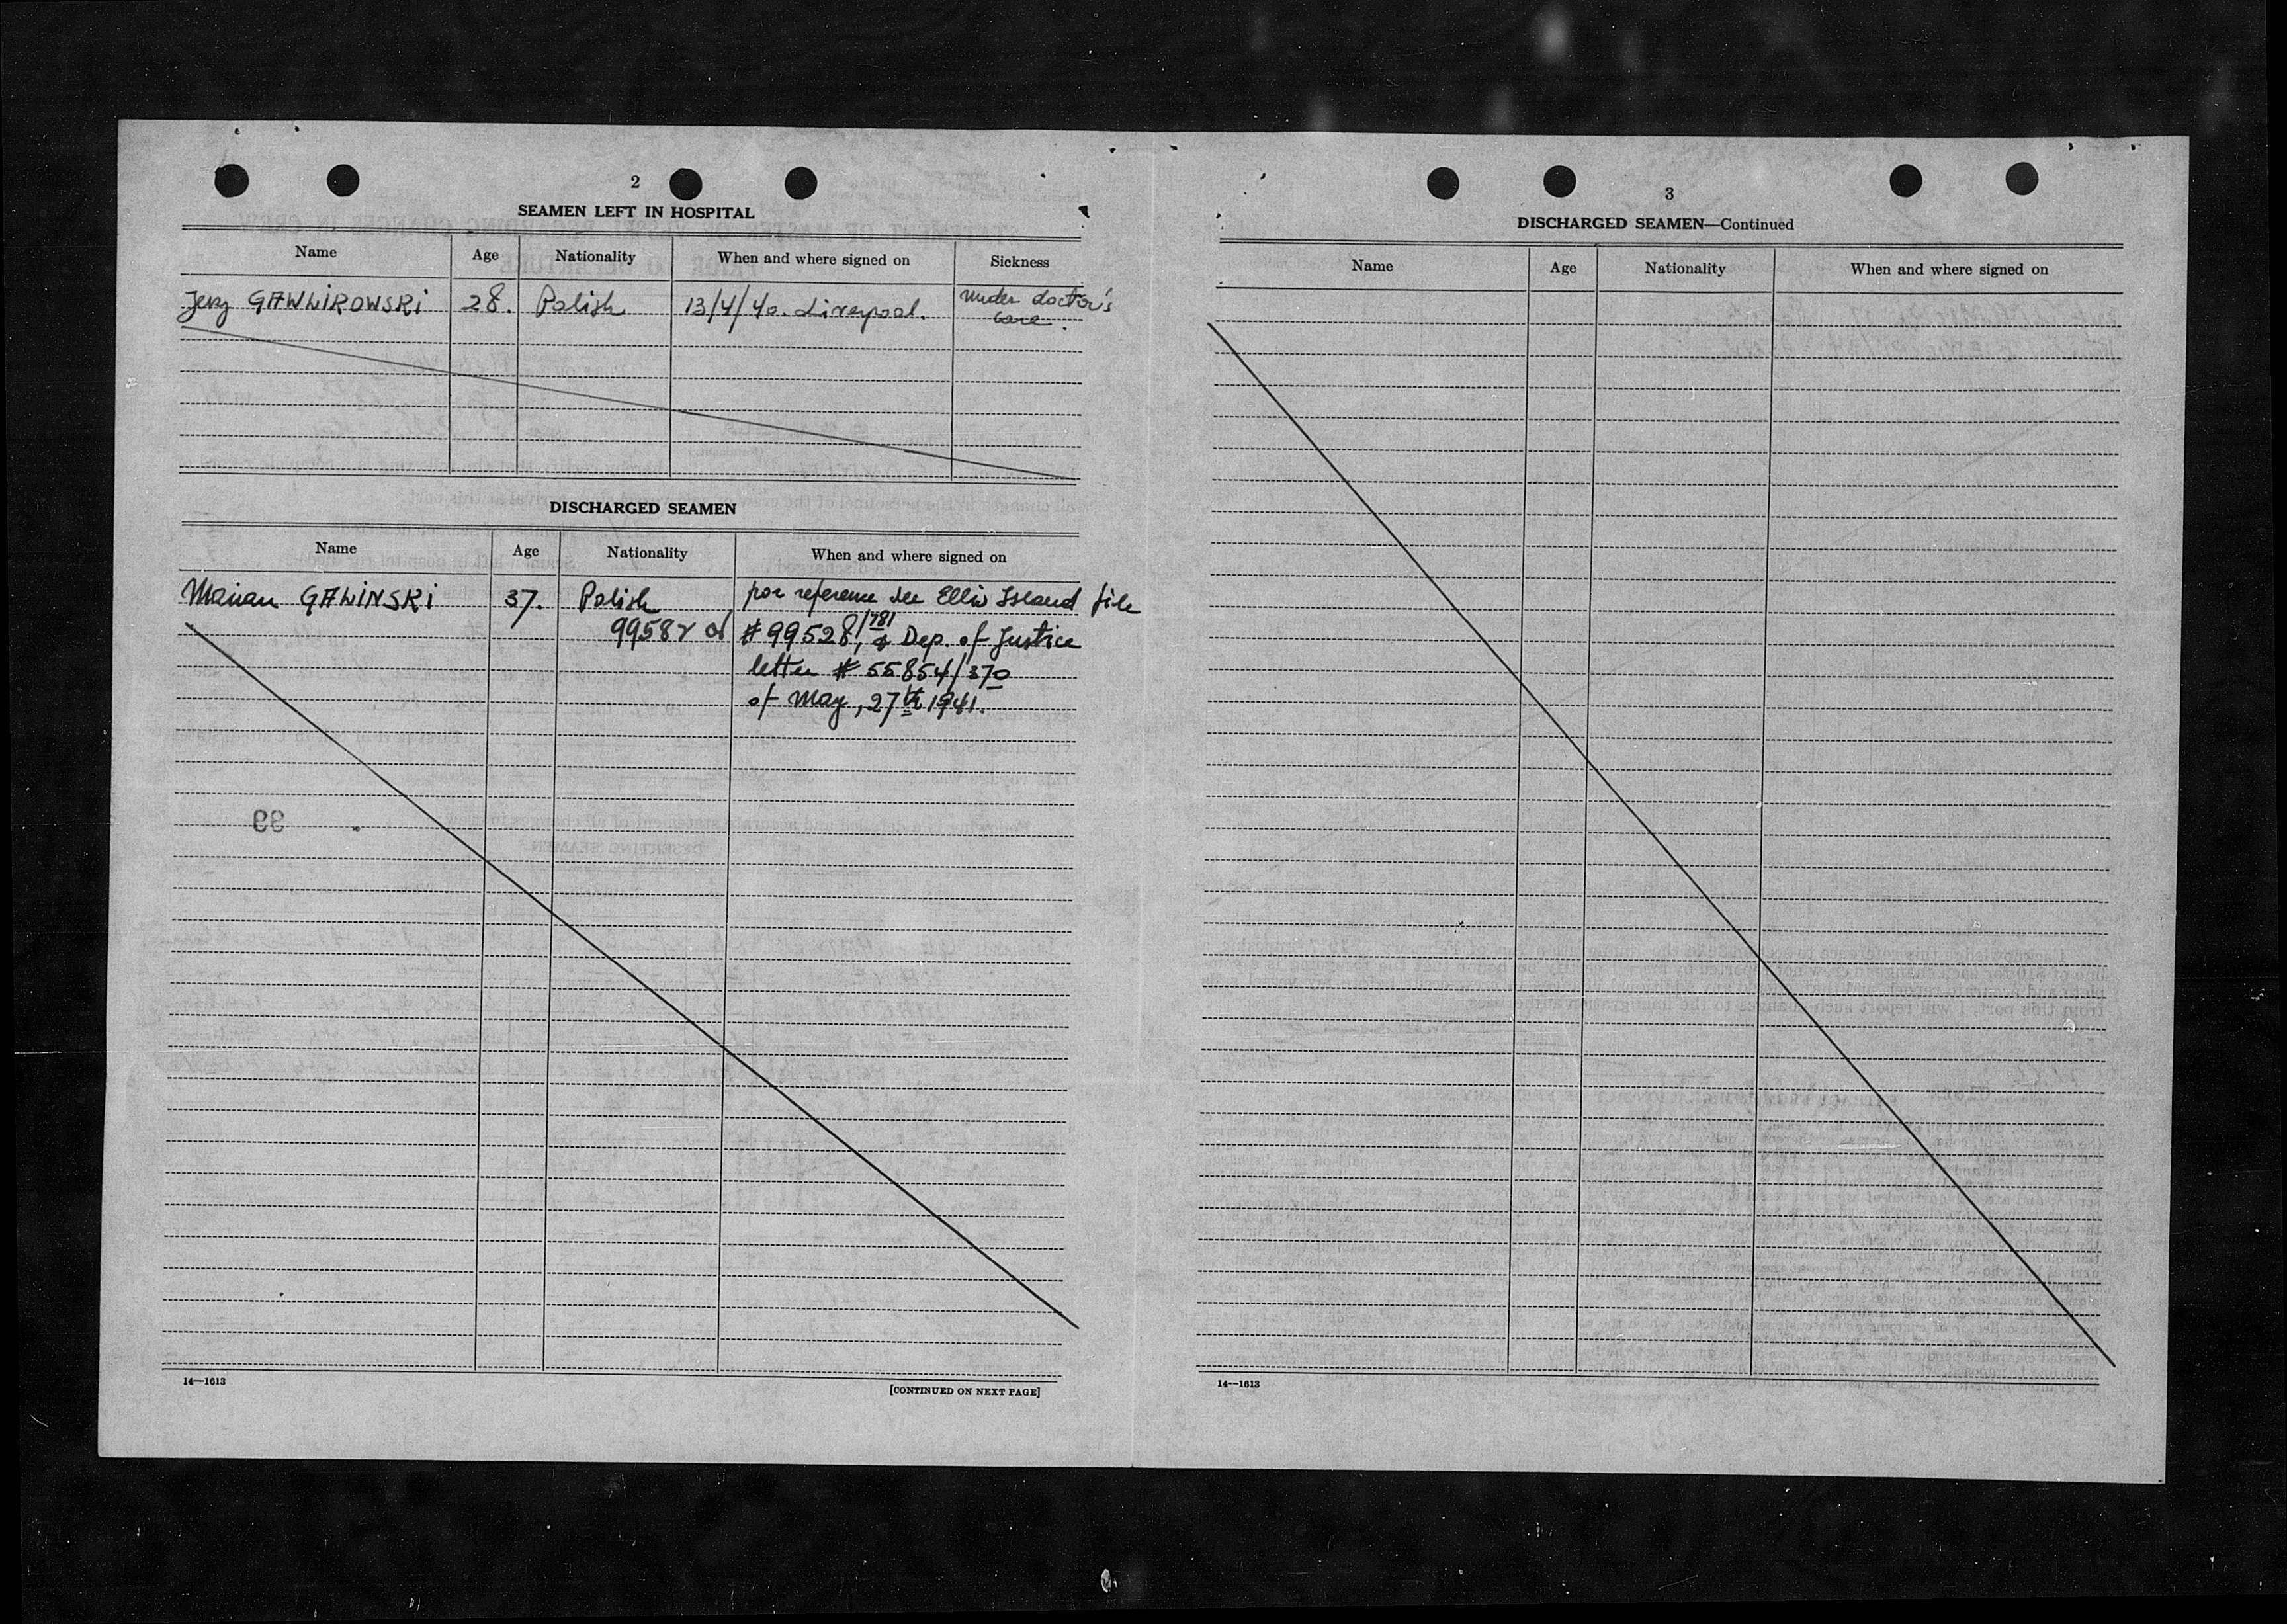 2
SEAMEN LEFT IN HOSPITAL
Name Age Nationality When and where signed on Sickness
Jerzy GAWLIROWSKI 28. Polish 13/4/40. Liverpool. under doctor's
care.
DISCHARGED SEAMEN
Name Age Nationality When and where signed on
Marian GALINSKI 37. Polish for reference see Ellis Island file
#99528/781, & Dep. of Justice
letter # 55854/370
of May, 27th 1941.
14—1613
[CONTINUED ON NEXT PAGE]
3
DISCHARGED SEAMEN—Continued
Name Age Nationality When and where signed on
14—1613